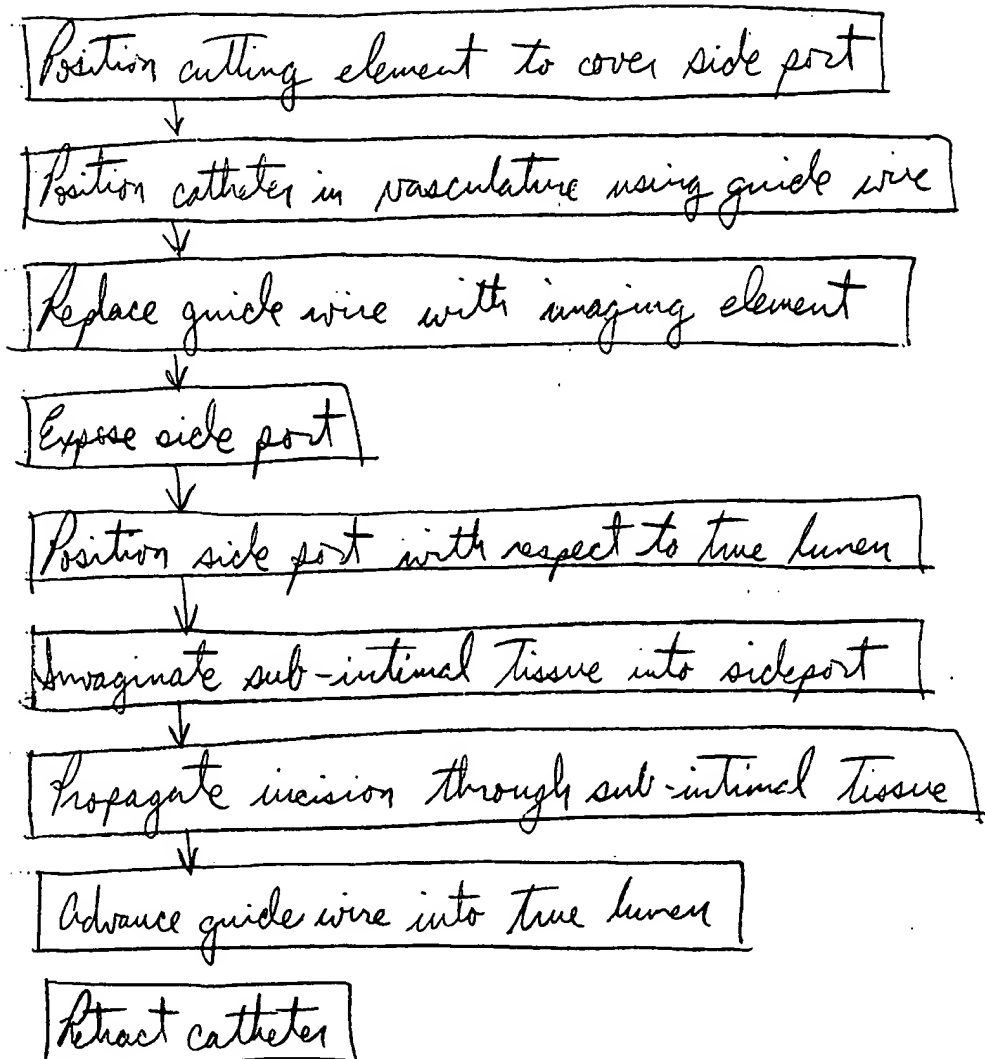 Position cutting element to cover side port
Position catheter in vasculature using guide wire
Replace guide wire with imaging element
Expose side port
Position side port with respect to true lumen
Invaginate sub-intimal tissue into sideport
Propagate incision through sub-intimal tissue
Advance guide wire into true lumen
Retract catheter